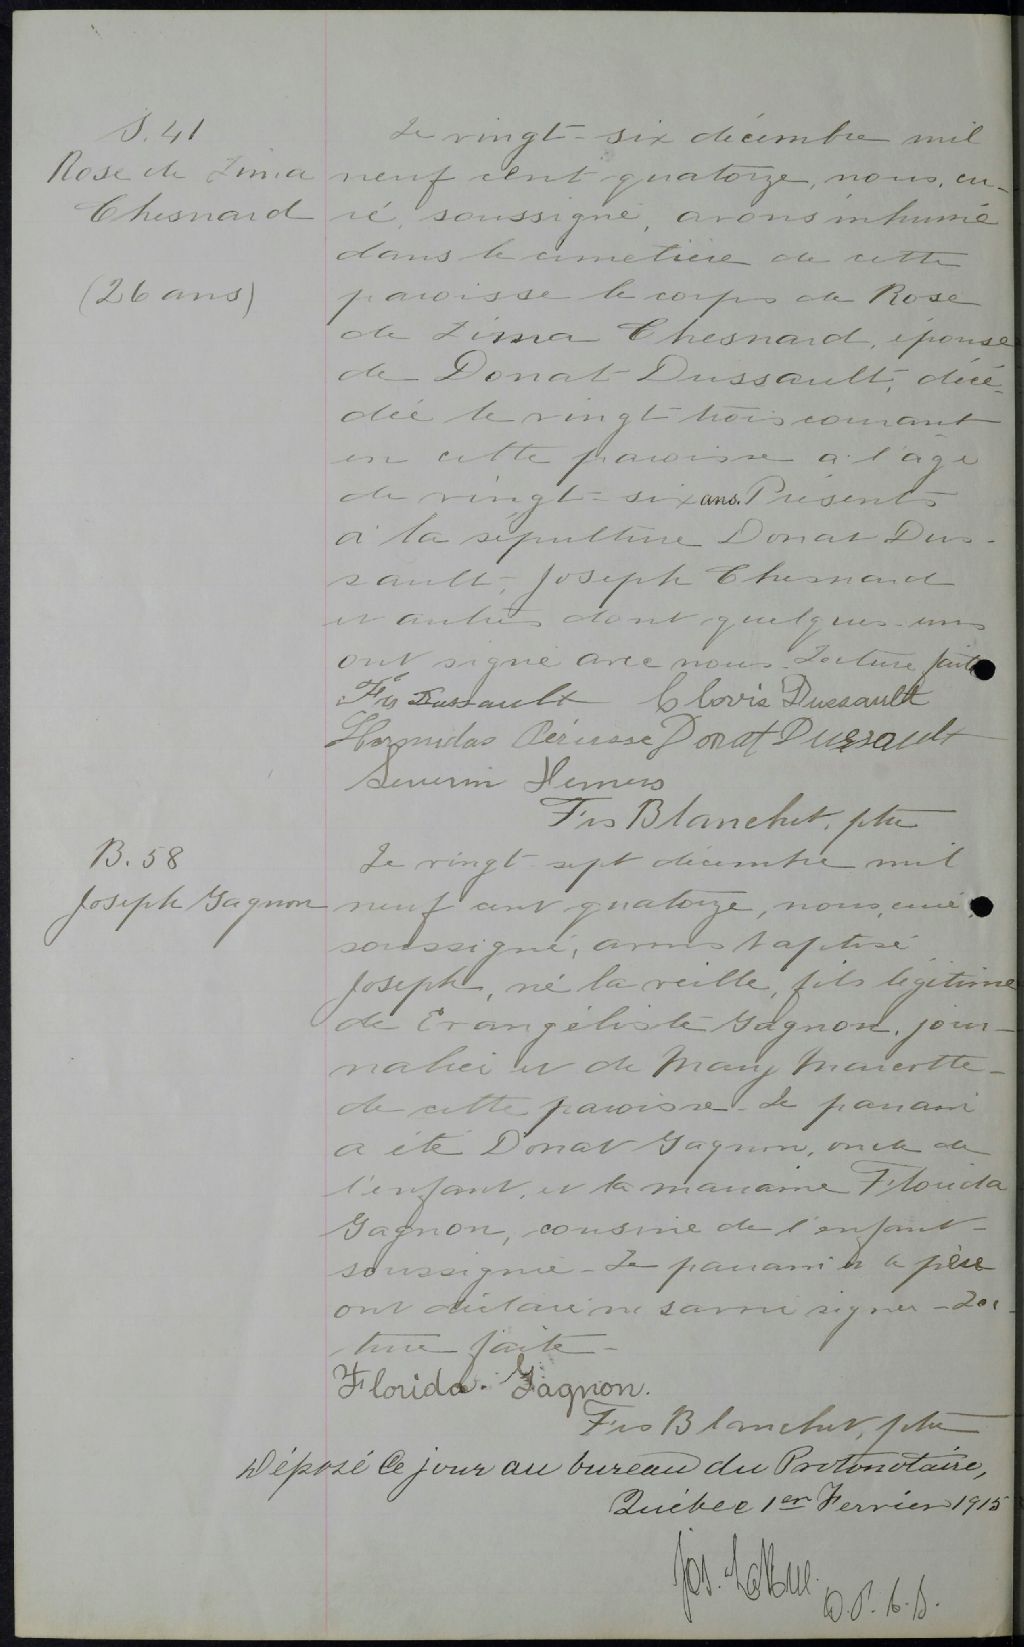 S. 41
Rose de Lima
Chesnard
(26 ans)
Le vingt-six décembre mil
neuf cent quatorze, nous, cu-
ré, soussigné, avons inhumé
dans le cimetière de cette
paroisse le corps de Rose
de Lima Chesnard, épouse
de Donat Dussault, décé-
dée le vingt-trois courant
en cette paroisse à l'âge
de vingt-six ans. Présents
à la sépulture Donat Dus-
sault, Joseph Chesnard
et autres dont quelques-uns
ont signé avec nous. Lecture faite
Frs Dussault Clovis Dussault
Hormidas Périsse Donat Dussault
Severin
Frs Blanchet, ptre
B. 58
Joseph Gagnon
Le vingt-sept décembre mil
neuf cent quatorze, nous, curé,
soussigné, avons baptisé
Joseph, né la veille, fils légitime
de Evangéliste Gagnon, jour-
nalier et de Mary Marcotte
de cette paroisse - Le parrain
a été Donat Gagnon, oncle de
l'enfant, et la marraine Florida
Gagnon, cousine de l'enfant
soussignée - Le parrain et le père
ont déclaré ne savoir signer - Lec-
ture faite -
Florida. Gagnon.
Frs Blanchet, ptre
Déposé ce jour au bureau du Protonotaire,
Québec 1er Fevrier 1915
Jos. LaRue.
D. P. C. S.